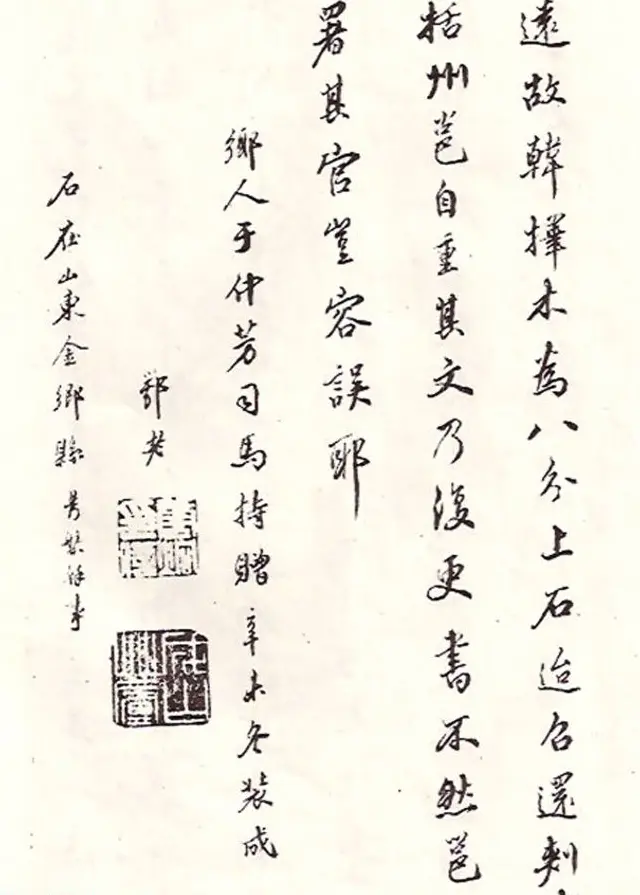 遠故韓擇木為八分上石迨召還刺
括州邕自重其文乃復更書不然邕
署其官豈容誤耶
鄉人于仲芳司馬持贈辛未冬裝成
鄂老
石在山東金鄉縣